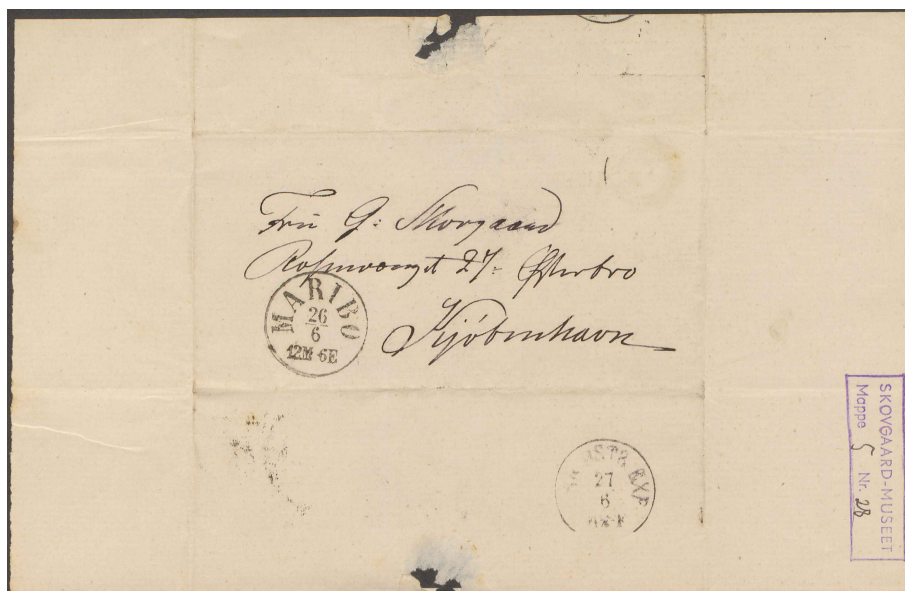 Fru G: Skovgaard
Rosenvænget 27: Østerbro
Kjöbenhavn
MARIBO
26
6
12M-6E
27
6
SKOVGAARD-MUSEET
Mappe 5 Nr. 28